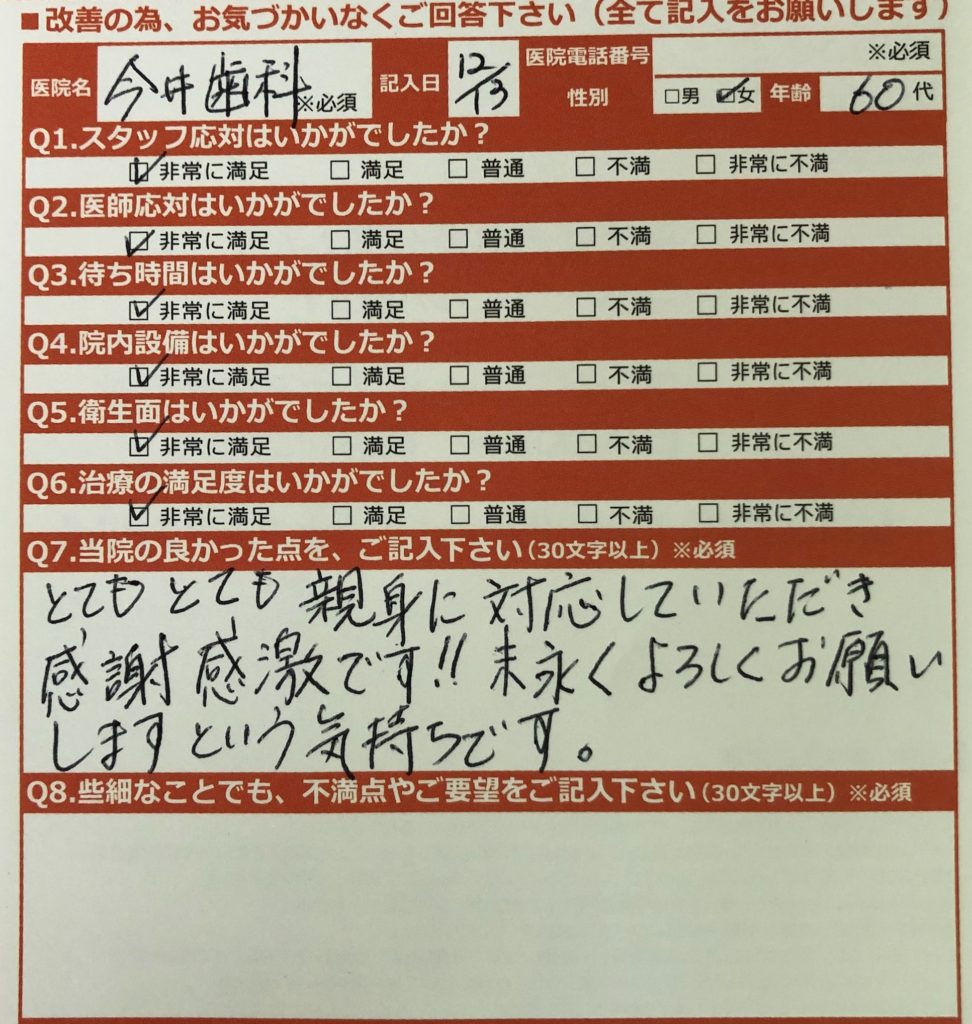 ■改善の為、お気づかいなくご回答下さい（全て記入をお願いします）
医院名 今井歯科 ※必須 記入日 12/13 医院電話番号 ※必須
性別 □男 ☑女 年齢 60代
Q1.スタッフ応対はいかがでしたか？
☑非常に満足 □満足 □普通 □不満 □非常に不満
Q2.医師応対はいかがでしたか？
☑非常に満足 □満足 □普通 □不満 □非常に不満
Q3.待ち時間はいかがでしたか？
☑非常に満足 □満足 □普通 □不満 □非常に不満
Q4.院内設備はいかがでしたか？
☑非常に満足 □満足 □普通 □不満 □非常に不満
Q5.衛生面はいかがでしたか？
☑非常に満足 □満足 □普通 □不満 □非常に不満
Q6.治療の満足度はいかがでしたか？
☑非常に満足 □満足 □普通 □不満 □非常に不満
Q7.当院の良かった点を、ご記入下さい（30文字以上）※必須
とてもとても親身に対応していただき
感謝、感激です!! 末永くよろしくお願い
しますという気持ちです。
Q8.些細なことでも、不満点やご要望をご記入下さい（30文字以上）※必須